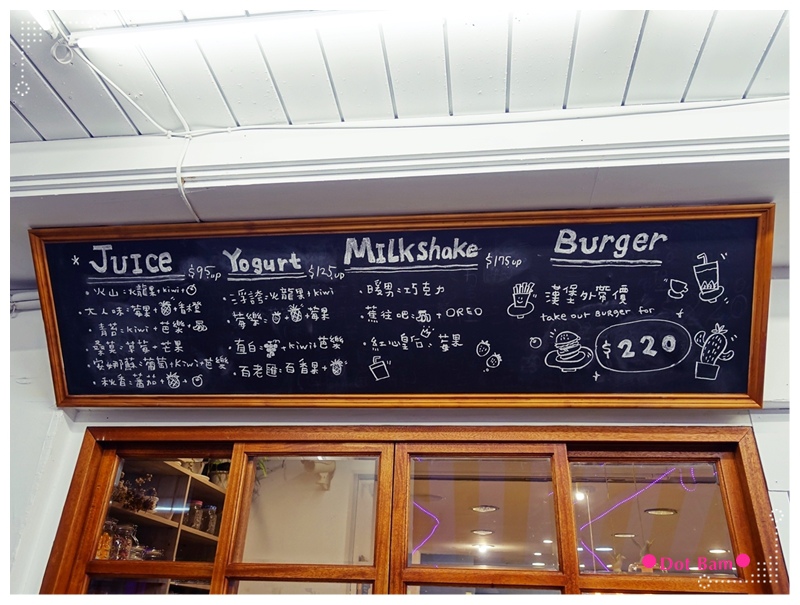 * Juice $95up
・火山:火龍果+kiwi+
・大人味:莓果++香橙
・青茄:kiwi+芭樂+
桑莫:草莓+芒果
・安娜蘇:葡萄+kiwi+芭樂
・秋香:蕃茄++
Yogurt $125up
・浮誇:火龍果+kiwi
・莓樂:++莓果
・有白:+kiwi+芭樂
・百老匯:百香果+
Milkshake $175up
・暖男:巧克力
・蕉往吧:+OREO
・紅心皇后:莓果
Burger
漢堡外帶價
take out BURGER for
$220
Dot Bam